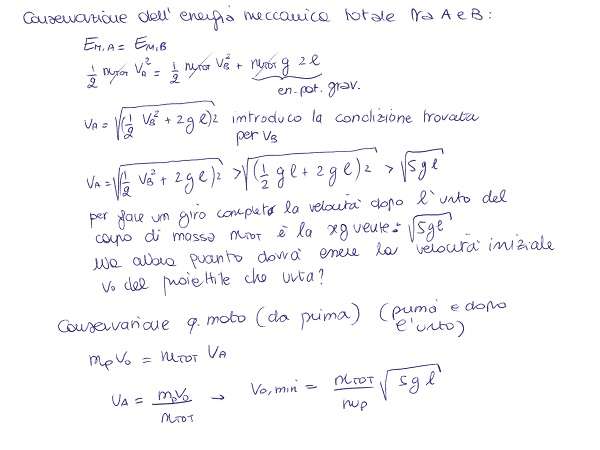 Conservazione dell'energia meccanica totale tra A e B:
E_M,A = E_M,B
1/2 m_TOT V_A² = 1/2 m_TOT V_B² + m_TOT g 2l
en. pot. grav.
V_A = √(1/2 V_B² + 2gl)2 introduco la condizione trovata
per V_B
V_A = √(1/2 V_B² + 2gl)2 > √(1/2 gl + 2gl)2 > √5gl
per fare un giro completo la velocità dopo l'urto del
corpo di massa m_TOT è la seguente: √5gl
Ma allora quanto dovrà essere la velocità iniziale
V₀ del proiettile che urta?
Conservazione q. moto (da prima) (prima e dopo
l'urto)
m_p V₀ = m_TOT V_A
V_A = m_p V₀ / m_TOT → V₀,min = m_TOT / m_p √5gl